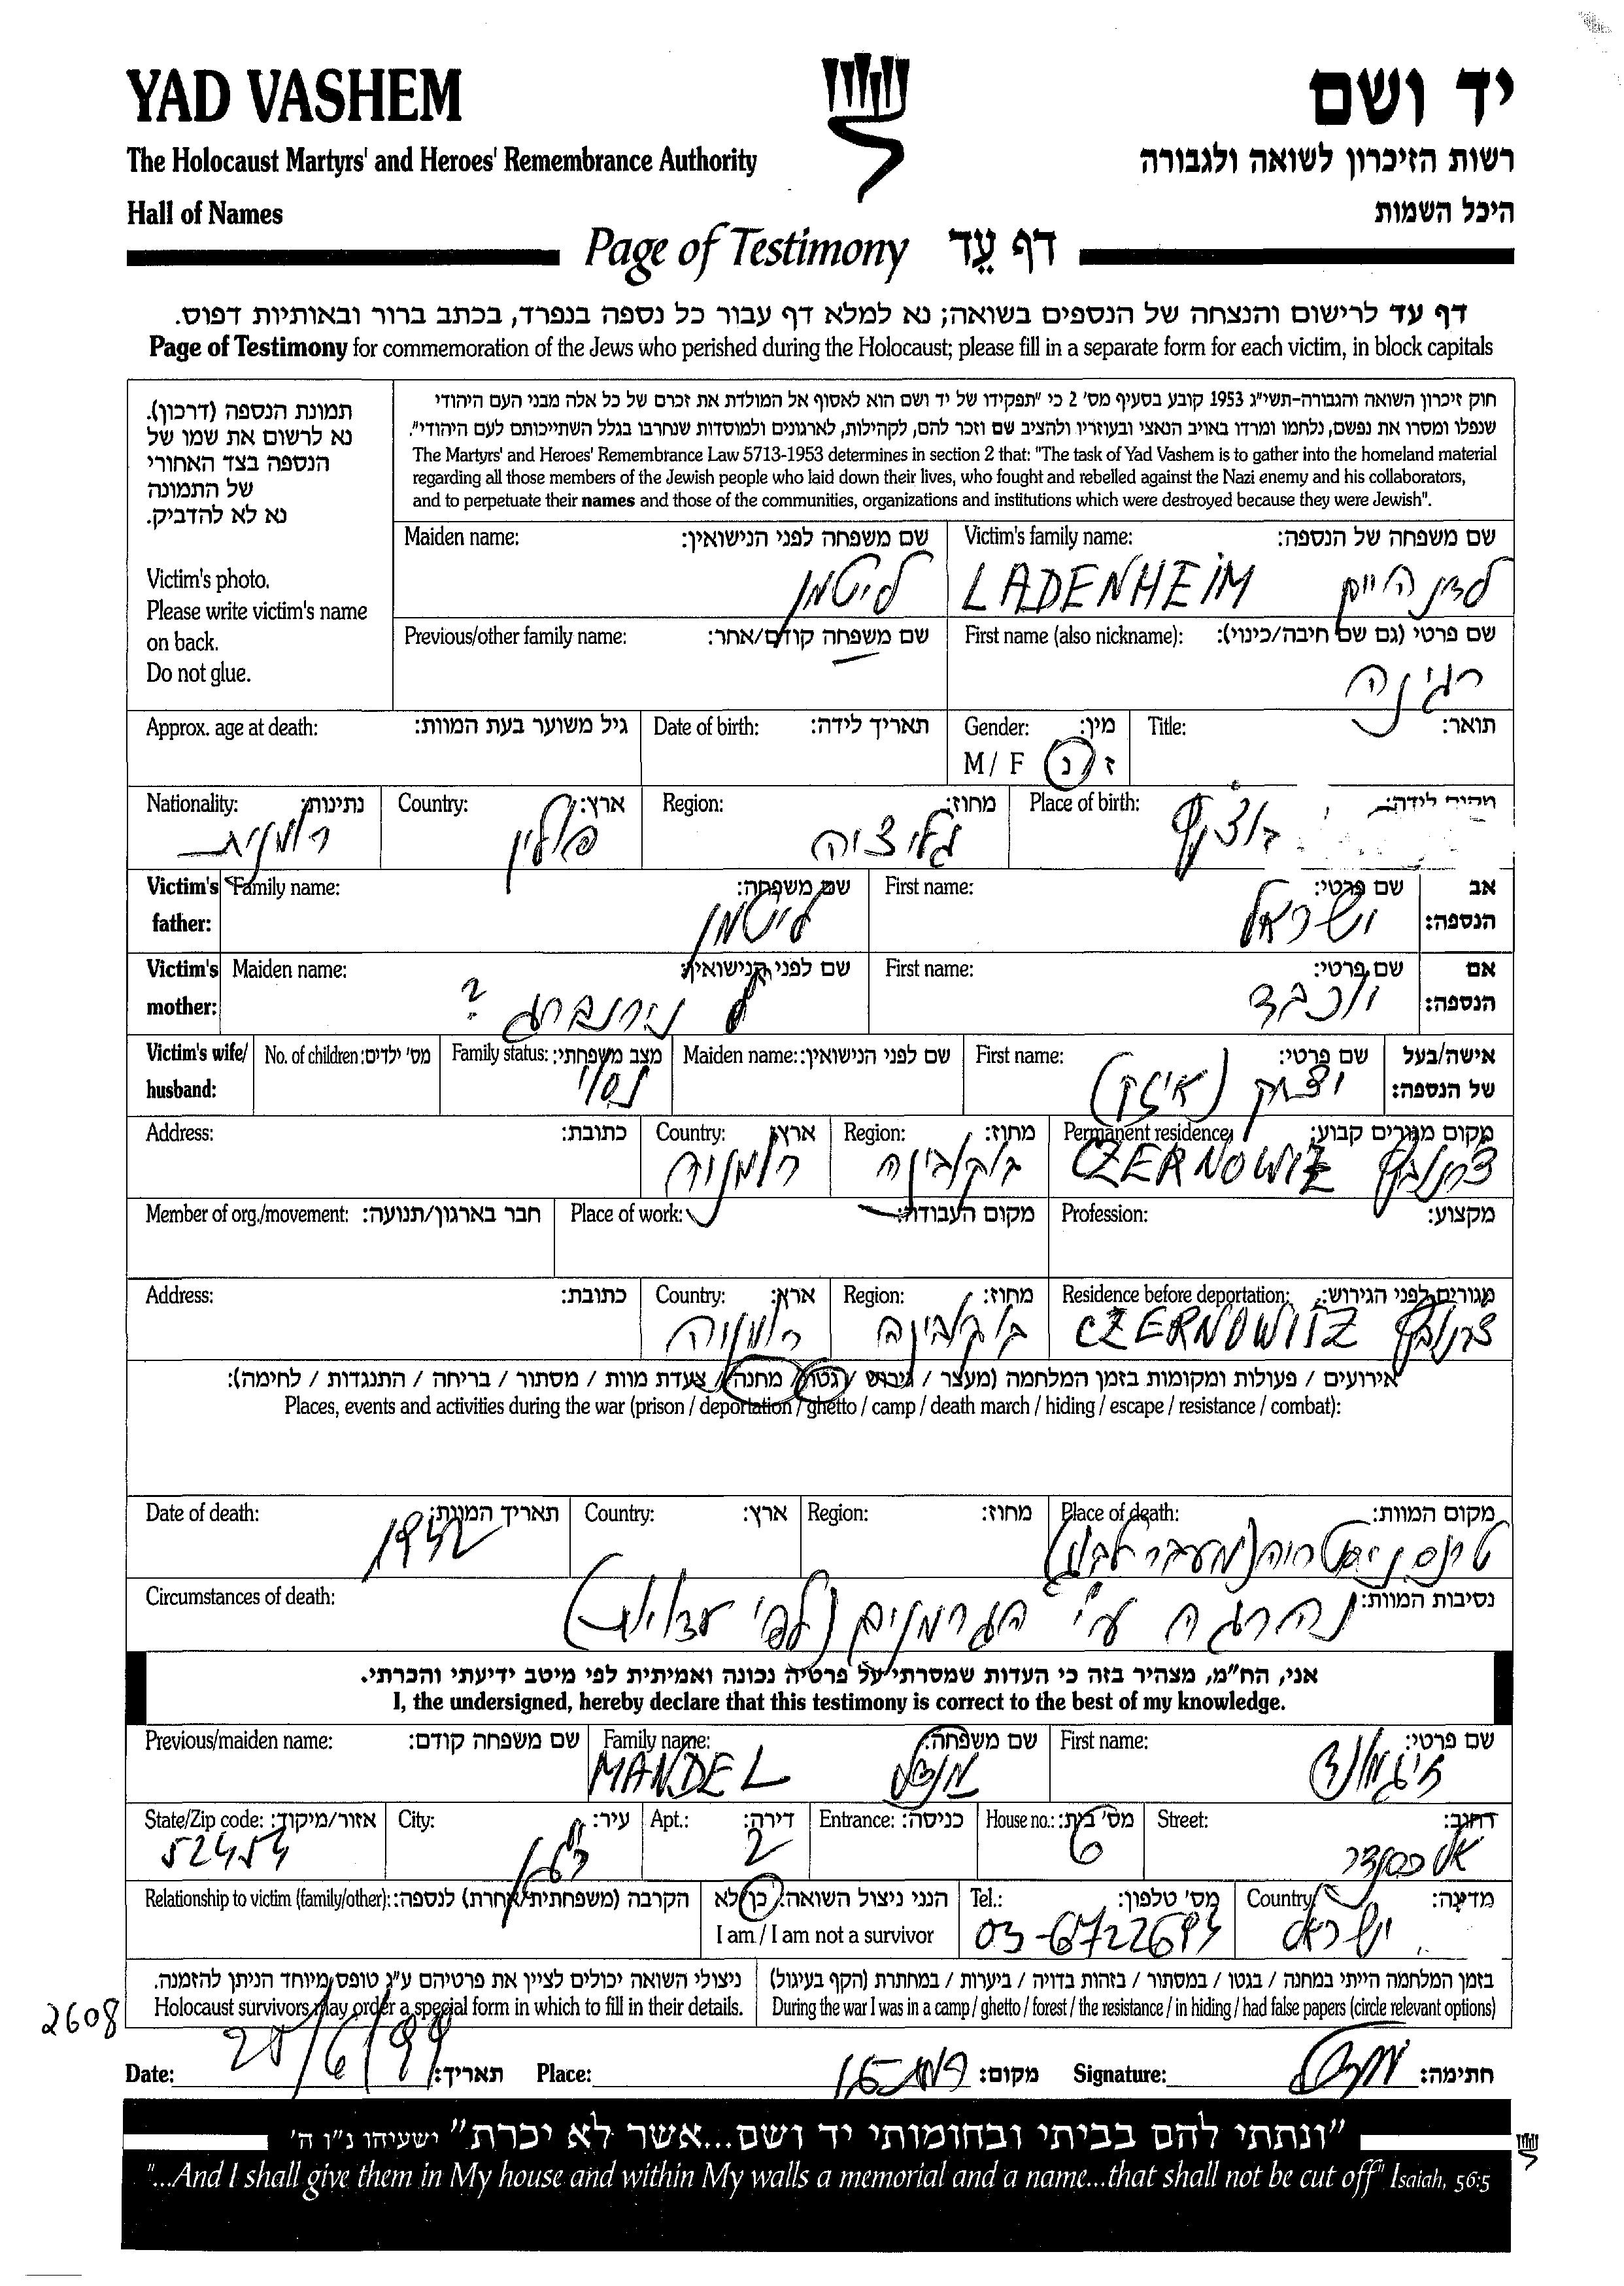 YAD VASHEM
יד ושם
The Holocaust Martyrs' and Heroes' Remembrance Authority
רשות הזיכרון לשואה ולגבורה
Hall of Names
היכל השמות
Page of Testimony דף עֵד
דף עד לרישום והנצחה של הנספים בשואה; נא למלא דף עבור כל נספה בנפרד, בכתב ברור ובאותיות דפוס.
Page of Testimony for commemoration of the Jews who perished during the Holocaust; please fill in a separate form for each victim, in block capitals
תמונת הנספה (דרכון).
נא לרשום את שמו של
הנספה בצד האחורי
של התמונה
נא לא להדביק.
Victim's photo.
Please write victim's name
on back.
Do not glue.
חוק זיכרון השואה והגבורה-תשי"ג 1953 קובע בסעיף מס' 2 כי "תפקידו של יד ושם הוא לאסוף אל המולדת את זכרם של כל אלה מבני העם היהודי
שנפלו ומסרו את נפשם, נלחמו ומרדו באויב הנאצי ובעוזריו ולהציב שם וזכר להם, לקהילות, לארגונים ולמוסדות שנחרבו בגלל השתייכותם לעם היהודי".
The Martyrs' and Heroes' Remembrance Law 5713-1953 determines in section 2 that: "The task of Yad Vashem is to gather into the homeland material
regarding all those members of the Jewish people who laid down their lives, who fought and rebelled against the Nazi enemy and his collaborators,
and to perpetuate their names and those of the communities, organizations and institutions which were destroyed because they were Jewish".
Victim's family name: שם משפחה של הנספה:
LADENHEIM לדנהיים
Maiden name: שם משפחה לפני הנישואין:
ליטמן
First name (also nickname): שם פרטי (גם שם חיבה/כינוי):
רגינה
Previous/other family name: שם משפחה קודם/אחר:
Title: תואר:
Gender: מין:
M / F ז / נ
Date of birth: תאריך לידה:
Approx. age at death: גיל משוער בעת המוות:
Place of birth: לידה:
Region: מחוז:
גליציה
Country: ארץ:
פולין
Nationality: נתינות:
רומנית
Victim's father: אב הנספה:
First name: שם פרטי:
ישראל
Family name: שם משפחה:
ליטמן
Victim's mother: אם הנספה:
First name: שם פרטי:
יוכבד
Maiden name: שם לפני הנישואין:
נירנברג ?
Victim's wife/husband: אישה/בעל של הנספה:
First name: שם פרטי:
יצחק (איזק)
Maiden name: שם לפני הנישואין:
Family status: מצב משפחתי:
נשוי
No. of children: מס' ילדים:
Permanent residence: מקום מגורים קבוע:
CZERNOWIZ צרנוביץ
Region: מחוז:
בוקובינה
Country: ארץ:
רומניה
Address: כתובת:
Profession: מקצוע:
Place of work: מקום העבודה:
Member of org./movement: חבר בארגון/תנועה:
Residence before deportation: מגורים לפני הגירוש:
CZERNOWITZ צרנוביץ
Region: מחוז:
בוקובינה
Country: ארץ:
רומניה
Address: כתובת:
אירועים / פעולות ומקומות בזמן המלחמה (מעצר / גירוש / גטו / מחנה / צעדת מוות / מסתור / בריחה / התנגדות / לחימה):
Places, events and activities during the war (prison / deportation / ghetto / camp / death march / hiding / escape / resistance / combat):
Place of death: מקום המוות:
טרנסניסטריה (מעבר לבוג)
Region: מחוז:
Country: ארץ:
Date of death: תאריך המוות:
1942
Circumstances of death: נסיבות המוות:
נהרגה ע"י הגרמנים (לפי עדויות)
אני, הח"מ, מצהיר בזה כי העדות שמסרתי על פרטיה נכונה ואמיתית לפי מיטב ידיעתי והכרתי.
I, the undersigned, hereby declare that this testimony is correct to the best of my knowledge.
First name: שם פרטי:
זיגמונד
Family name: שם משפחה:
MANDEL מנדל
Previous/maiden name: שם משפחה קודם:
Street: רחוב:
House no.: מס' בית:
6
Entrance: כניסה:
Apt.: דירה:
2
City: עיר:
State/Zip code: אזור/מיקוד:
52454
Country: מדינה:
ישראל
Tel.: מס' טלפון:
03-6722693
הנני ניצול השואה: כן/לא
I am / I am not a survivor
Relationship to victim (family/other): הקרבה (משפחתית/אחרת) לנספה:
בזמן המלחמה הייתי במחנה / בגטו / במסתור / בזהות בדויה / ביערות / במחתרת (הקף בעיגול)
During the war I was in a camp / ghetto / forest / the resistance / in hiding / had false papers (circle relevant options)
ניצולי השואה יכולים לציין את פרטיהם ע"ג טופס מיוחד הניתן להזמנה.
Holocaust survivors may order a special form in which to fill in their details.
2608
Date: תאריך:
Place: מקום:
Signature: חתימה:
"ונתתי להם בביתי ובחומותי יד ושם...אשר לא יכרת" ישעיהו נ"ו ה'
"...And I shall give them in My house and within My walls a memorial and a name...that shall not be cut off" Isaiah, 56:5